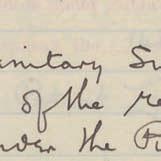 anitary Su
of the re
nder the Pu